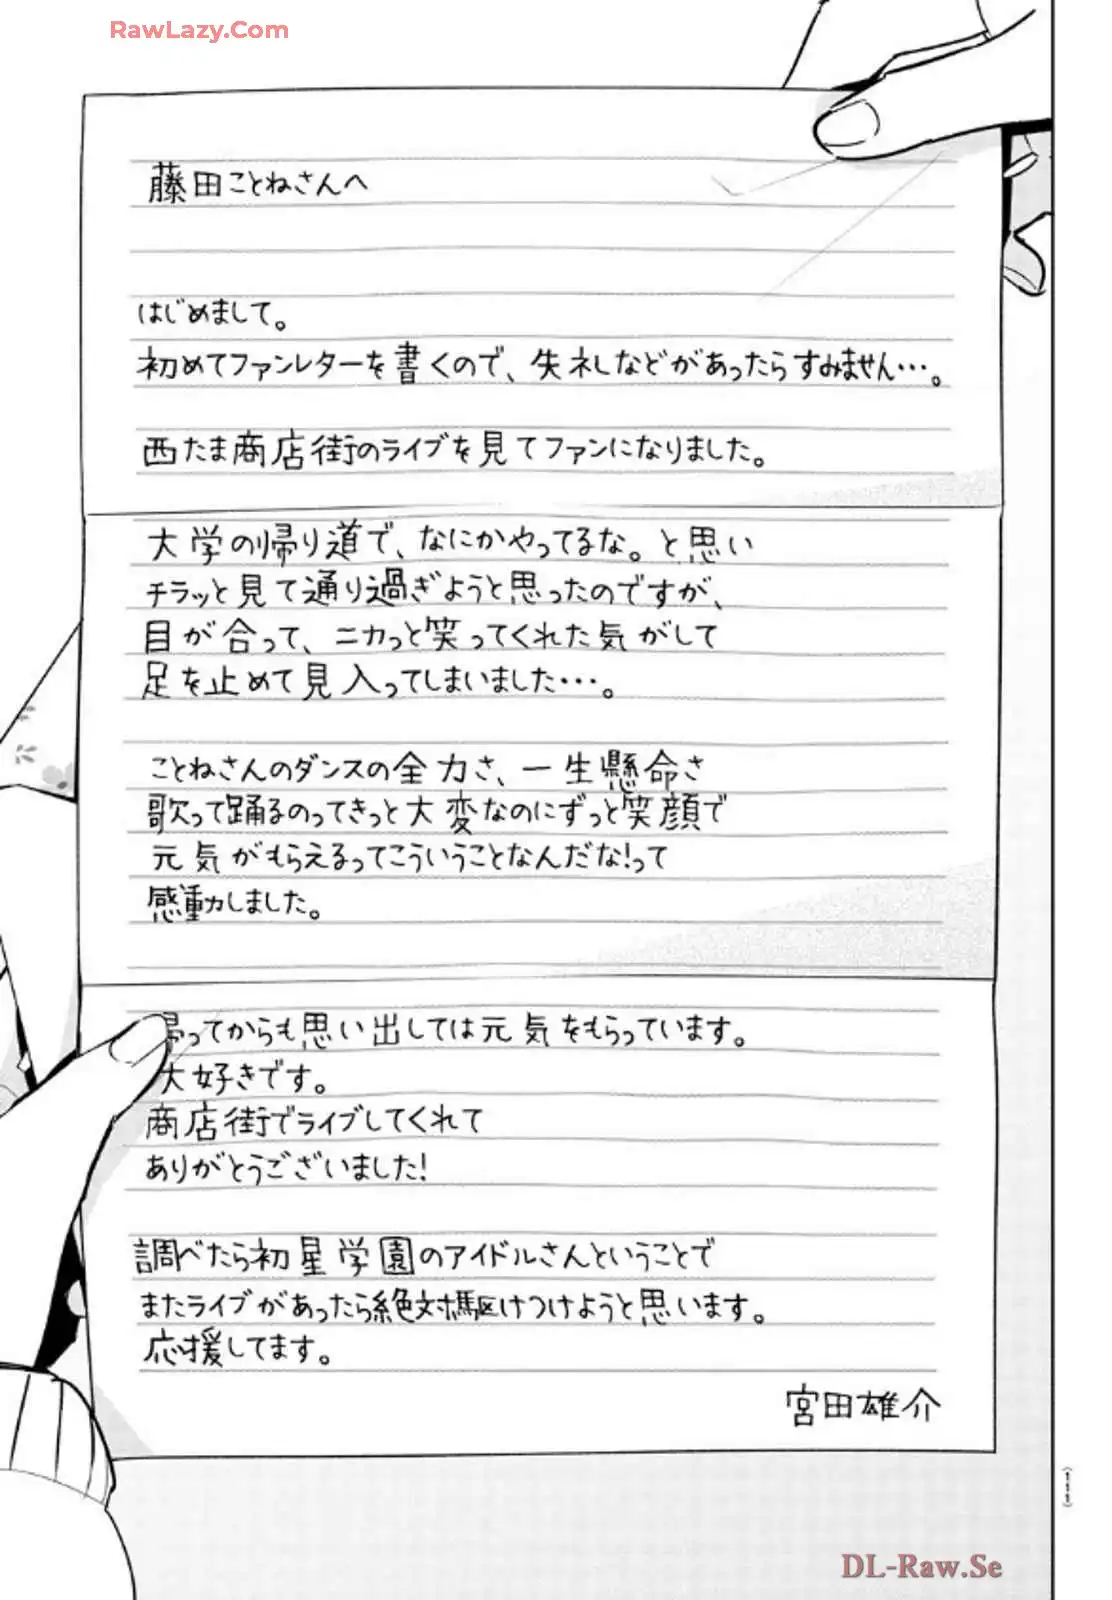 RawLazy.Com
藤田ことねさんへ
はじめまして。
初めてファンレターを書くので、失礼などがあったらすみません…。
西たま商店街のライブを見てファンになりました。
大学の帰り道で、なにかやってるな。と思い
チラッと見て通り過ぎようと思ったのですが、
目が合って、ニカっと笑ってくれた気がして
足を止めて見入ってしまいました…。
ことねさんのダンスの全力さ、一生懸命さ
歌って踊るのってきっと大変なのにずっと笑顔で
元気がもらえるってこういうことなんだな!って
感動しました。
帰ってからも思い出しては元気をもらっています。
大好きです。
商店街でライブしてくれて
ありがとうございました!
調べたら初星学園のアイドルさんということで
またライブがあったら絶対駆けつけようと思います。
応援してます。
宮田雄介
(111)
DL-Raw.Se